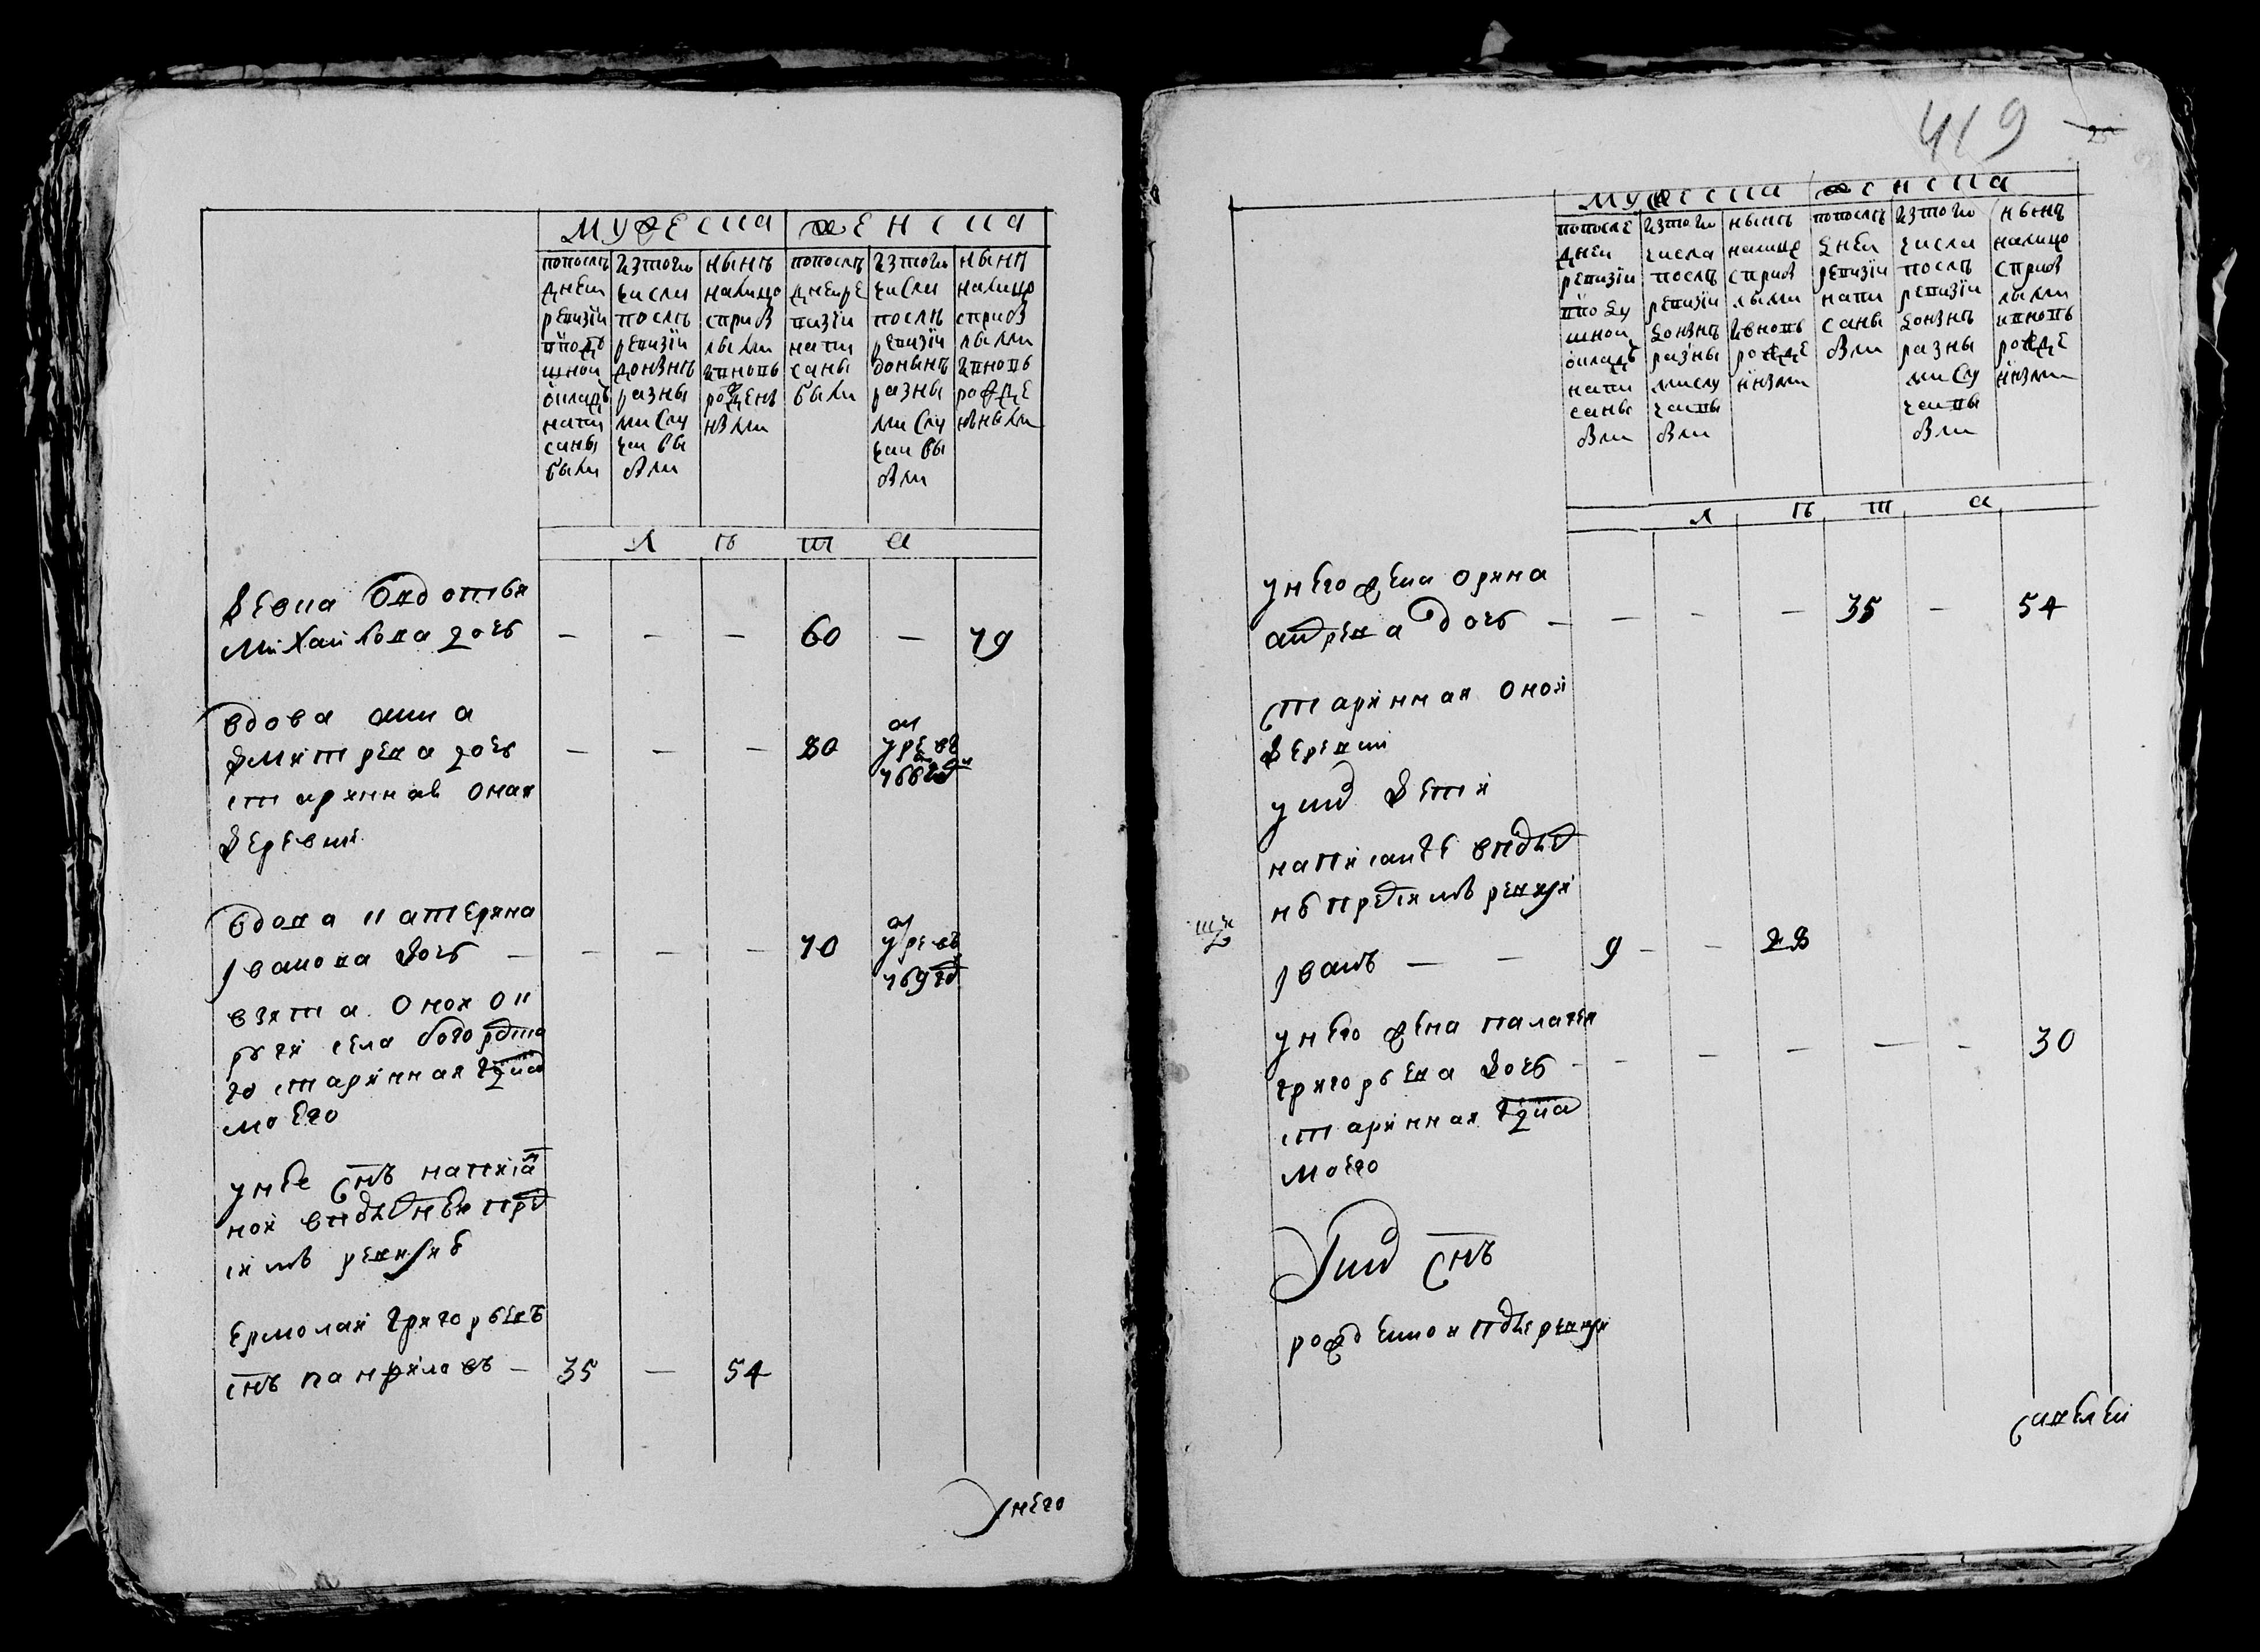 мужеска женска
попослѣ дней ревизiи вподушной окладъ написаны были
изтого числа послѣ ревизiи донынѣ разными случаи выбыли
нынѣ налицо сприбылыми ивновь рожденными
попослѣ дней ревизiи написаны были
изтого числа послѣ ревизiи донынѣ разными случаи выбыли
нынѣ налицо сприбылыми ивновь рожденными
л ѣ т а
девка овдотья
михайлова дочь — — — 60 — 79
вдова анна
дмитрева дочь — — — 80
старинная оная
деревни
вдова катерина
Iванова дочь — — — — 70
взята оной ок
руги села богородска
го старинная
моего
унее снъ написа
ной
ревизiи
Ермолай григорьевъ
снъ панфиловъ — 35 — 54
унего
419
25
мужеска женска
попослѣ дней ревизiи вподушной окладъ написаны были
изтого числа послѣ ревизiи донынѣ разными случаи выбыли
нынѣ налицо сприбылыми ивновь рожденными
попослѣ дней ревизiи написаны были
изтого числа послѣ ревизiи донынѣ разными случаи выбыли
нынѣ налицо сприбылыми ивновь рожденными
л ѣ т а
унего жена орина
андрева дочь — — — — 35 — 54
старинная оной
деревни
уних дети
написание
ревизiи
Iванъ — — 9 — — 28
унего жена палагея
григорьева дочь — — — — — — 30
старинная
моего
Уних снъ
рожденной ревизiи
савелей